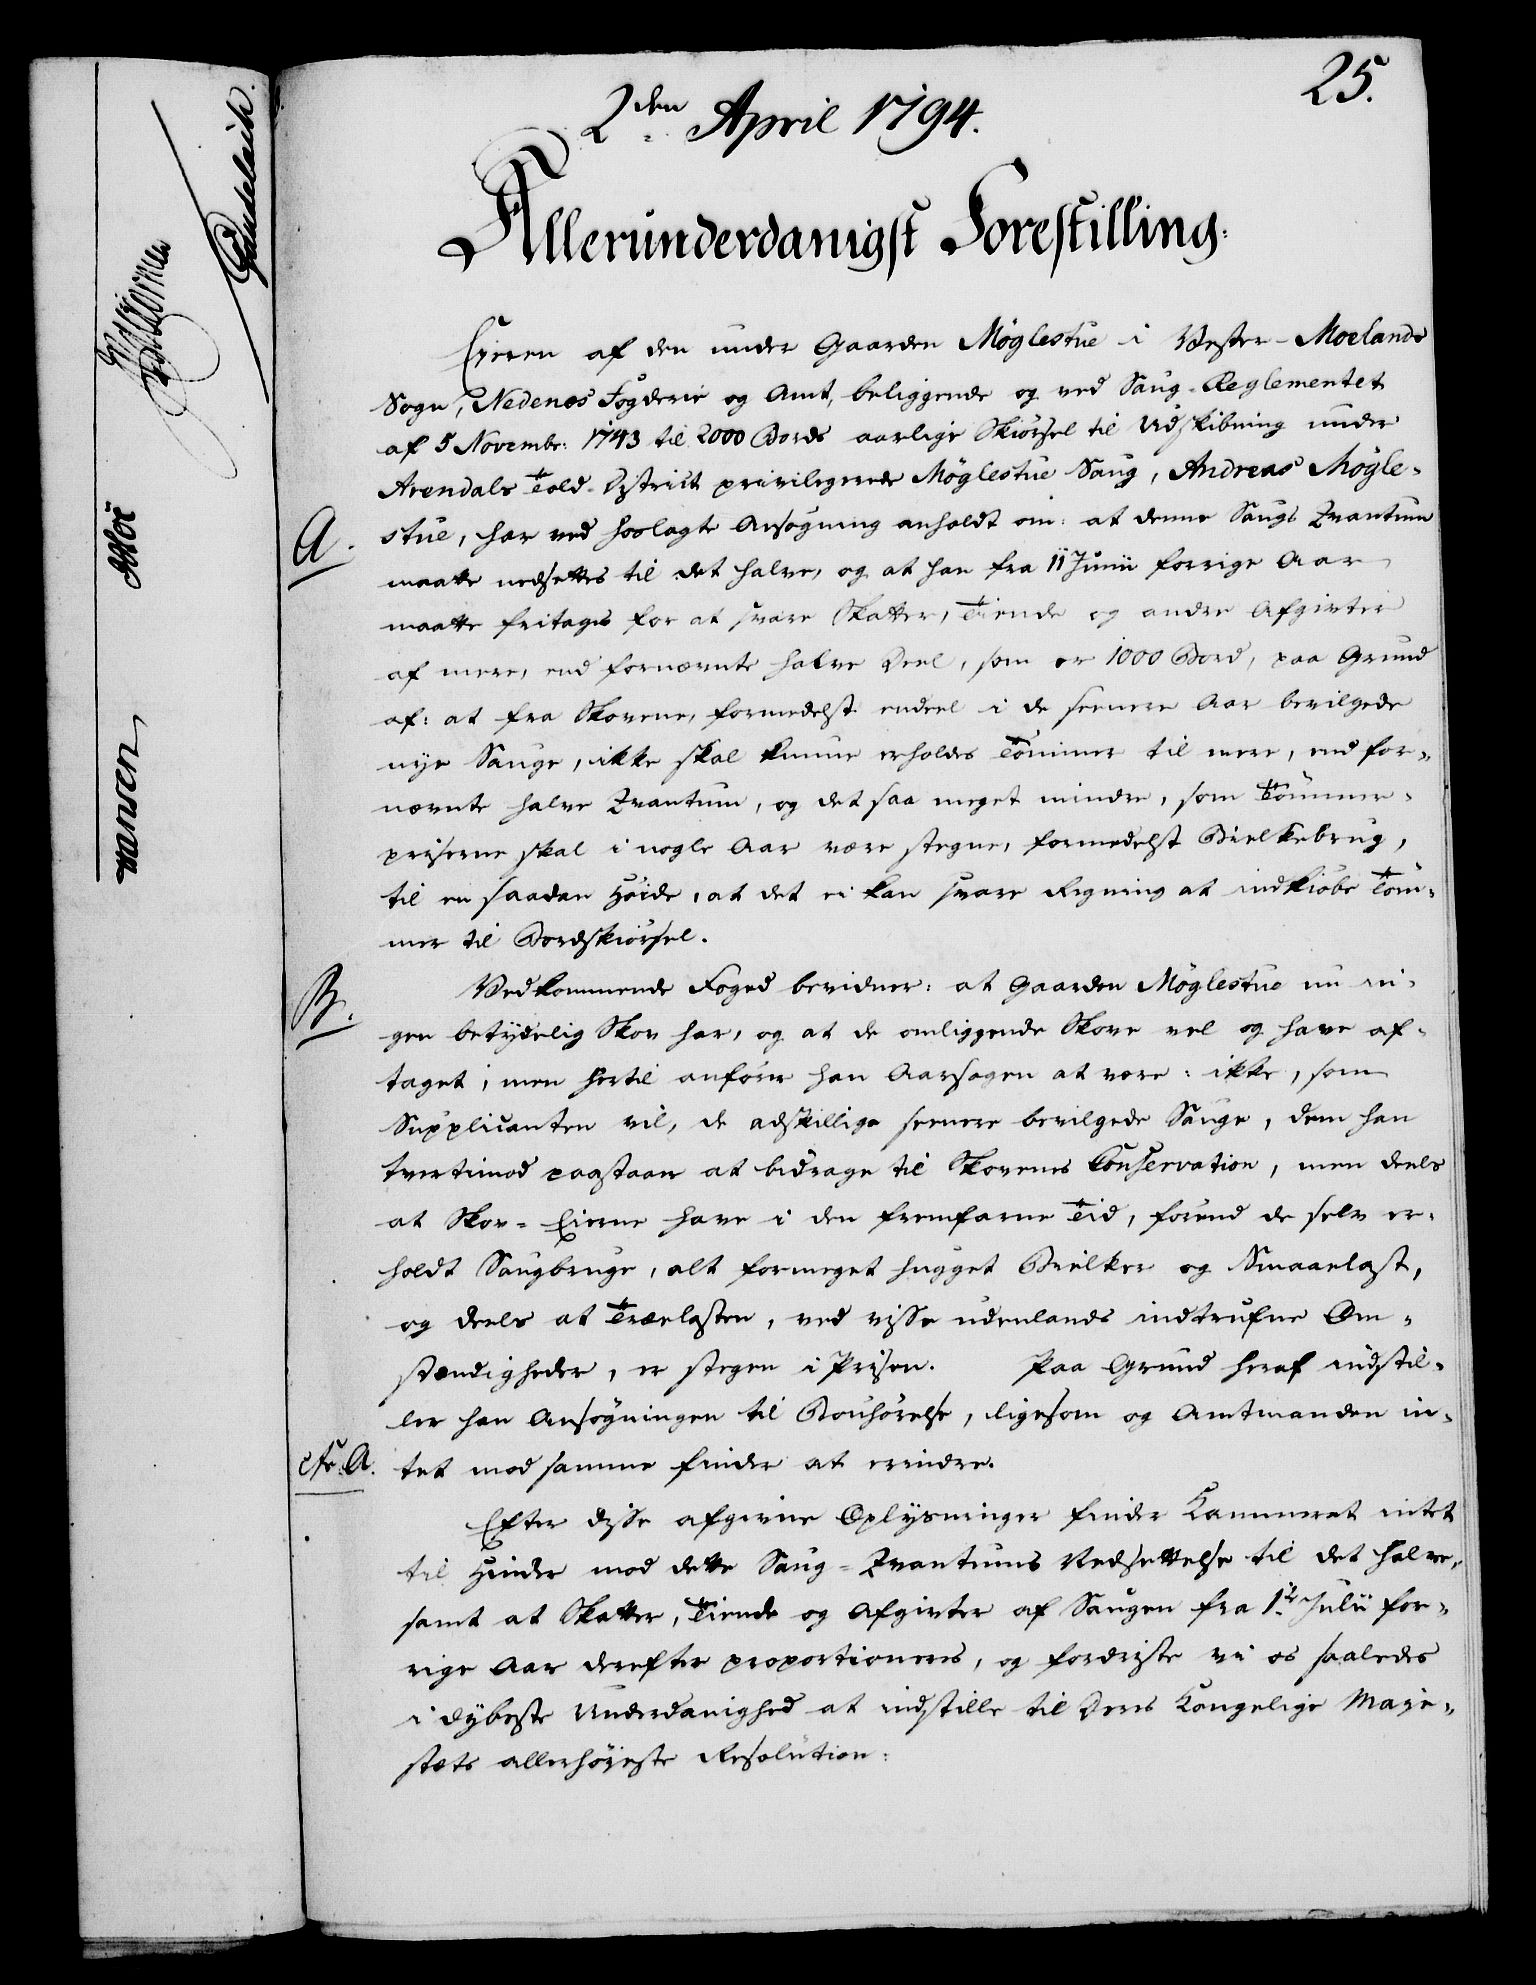 25.
2den April 1794.
Allerunderdanigst Forestilling:
Eieren af den under Gaarden Möglestue i Vester-Moelands
Sogn, Nedenes Fogderie og Amt, beliggende og ved Saug-Reglementet
af 5 Novembr: 1743 til 2000 Bords aarlige Skiørsel til Udskibning under
Arendals Told-District privilegerede Möglestue Saug, Andreas Mögle-
A.
stue, har ved hoslagte Ansøgning anholdt om: at denne Saugs Qvantum
maatte nedsettes til det halve, og at han fra 11 Junii forrige Aar
maatte fritages for at svare Skatter, Tiende og andre Afgivter
af mere, end fornævnte halve Deel, som er 1000 Bord, paa Grund
af: at fra Skovene, formedelst endeel i de seenere Aar bevilgede
nye Sauge, ikke skal kunne erholdes Tömmer til mere, end for-
nævnte halve Qvantum, og det saa meget mindre, som Tömmer-
priserne skal i nogle Aar være stegne, formedelst Bielkebrug,
til en saadan Høide, at det ei kan svare Regning at indkiøbe Töm-
mer til Bordskiørsel.
B.
Vedkommende Foged bevidner: at Gaarden Möglestue nu in-
gen betydelig Skov har, og at de omliggende Skove vel og have af-
taget; men hertil anfører han Aarsagen at være: ikke, som
Supplicanten vil, de adskillige seenere bevilgede Sauge, dem han
tvertimod paastaar at bidrage til Skovenes Conservation, men deels
at Skov-Eierne have i den fremfarne Tid, forend de selv er-
holdt Saugbruge, alt formeget hugget Bielker og Smaaelast,
og deels at Trælasten, ved visse udenlands indtrufne Om-
stændigheder, er stegen i Prisen. Paa Grund heraf indstil-
ler han Ansøgningen til Bønhørelse, ligesom og Amtmanden in-
cfr. A.
tet mod samme finder at erindre.
Efter disse afgivne Oplysninger finder Kammeret intet
til Hinder mod dette Saug-Qvantums Nedsettelse til det halve,
samt at Skatter, Tiende og Afgivter af Saugen fra 1te Julii for-
rige Aar derefter proportioneres, og fordriste vi os saaledes
i dybeste Underdanighed at indstille til Deres Kongelige Maje-
stæts allerhøjeste Resolution: